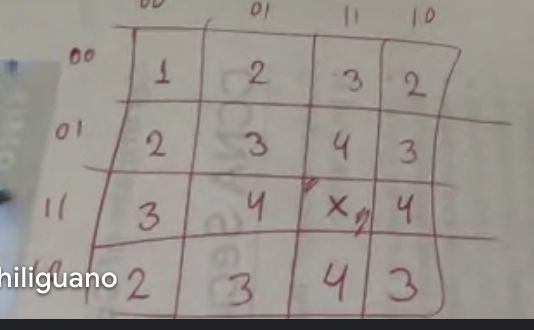 00 01 11 10
00 1 2 3 2
01 2 3 4 3
11 3 4 x 4
2 3 4 3
hiliguano